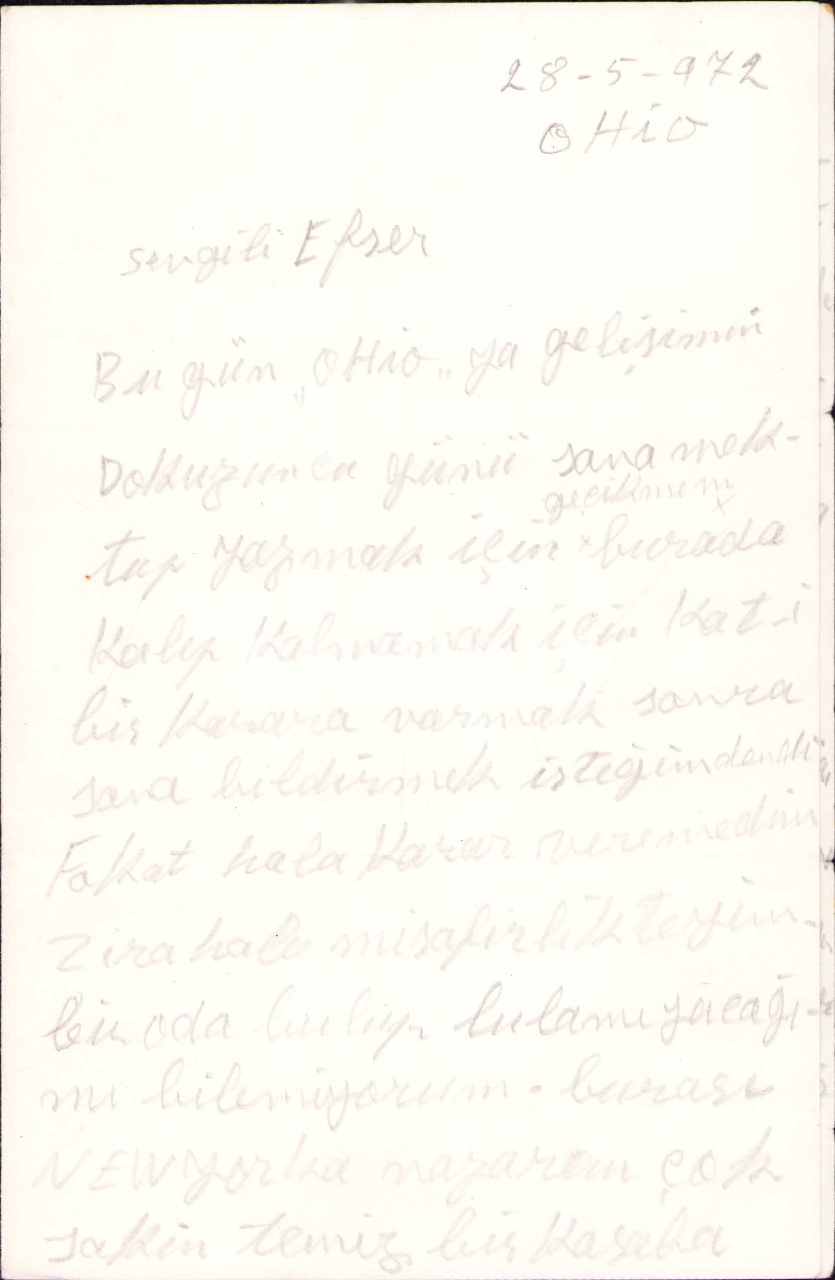 28-5-972
OHio
sevgili Efser
Bu gün „OHio„ ya gelişimin
Dokuzuncu günü sana mek-
gecikmem
tup yazmak için x burada
Kalıp Kalmamak için Kat-i
bir Karara varmak sonra
sana bildirmek isteğimdendi
Fakat hala Karar veremedim
Zira hala misafirlikteyim-
bir oda bulup bulamıyacağı-
mı bilemiyorum - burası
NEWyorka nazaran çok
sakin temiz bir Kasaba